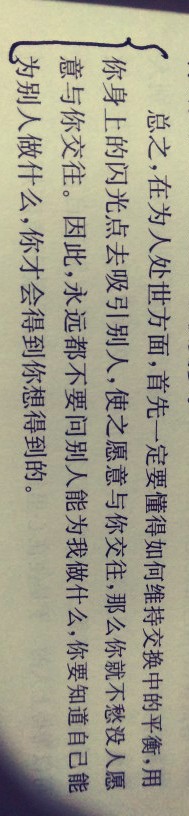 总之，在为人处世方面，首先一定要懂得如何维持交换中的平衡，用
你身上的闪光点去吸引别人，使之愿意与你交往，那么你就不愁没人愿
意与你交往。因此，永远都不要问别人能为我做什么，你要知道自己能
为别人做什么，你才会得到你想得到的。